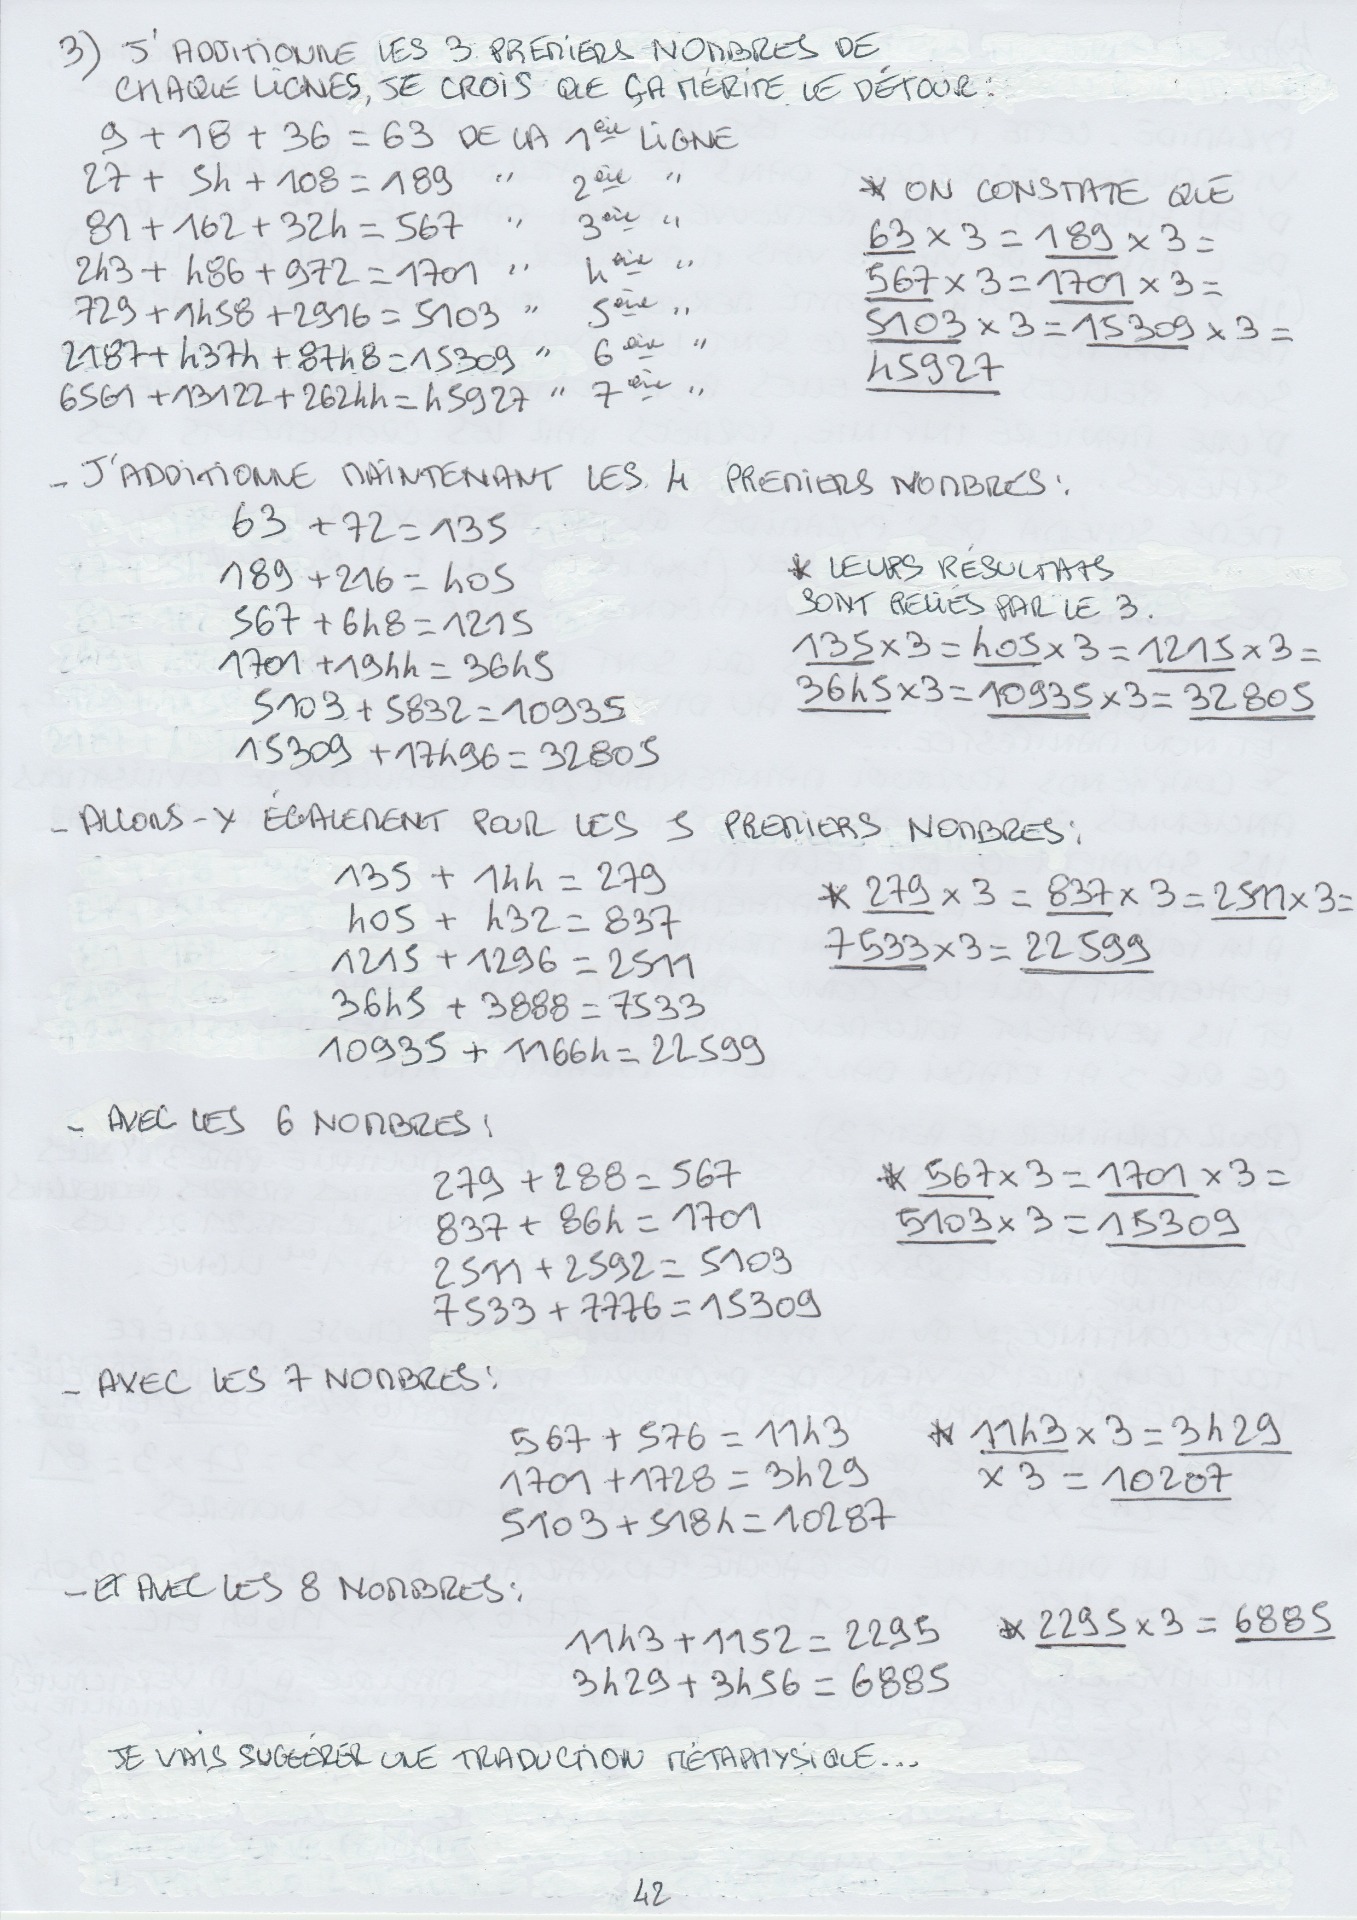 3) J'ADDITIONNE LES 3 PREMIERS NOMBRES DE
CHAQUE LIGNES, JE CROIS QUE ÇA MÉRITE LE DÉTOUR :
9 + 18 + 36 = 63 DE LA 1ère LIGNE
27 + 54 + 108 = 189 " 2ème "
81 + 162 + 324 = 567 " 3ème "
243 + 486 + 972 = 1701 " 4ème "
729 + 1458 + 2916 = 5103 " 5ème "
2187 + 4374 + 8748 = 15309 " 6ème "
6561 + 13122 + 26244 = 45927 " 7ème "
* ON CONSTATE QUE
63 × 3 = 189 × 3 =
567 × 3 = 1701 × 3 =
5103 × 3 = 15309 × 3 =
45927
- J'ADDITIONNE MAINTENANT LES 4 PREMIERS NOMBRES :
63 + 72 = 135
189 + 216 = 405
567 + 648 = 1215
1701 + 1944 = 3645
5103 + 5832 = 10935
15309 + 17496 = 32805
* LEURS RÉSULTATS
SONT RELIÉS PAR LE 3.
135 × 3 = 405 × 3 = 1215 × 3 =
3645 × 3 = 10935 × 3 = 32805
- ALLONS-Y ÉGALEMENT POUR LES 5 PREMIERS NOMBRES :
135 + 144 = 279
405 + 432 = 837
1215 + 1296 = 2511
3645 + 3888 = 7533
10935 + 11664 = 22599
* 279 × 3 = 837 × 3 = 2511 × 3 =
7533 × 3 = 22599
- AVEC LES 6 NOMBRES :
279 + 288 = 567
837 + 864 = 1701
2511 + 2592 = 5103
7533 + 7776 = 15309
* 567 × 3 = 1701 × 3 =
5103 × 3 = 15309
- AVEC LES 7 NOMBRES :
567 + 576 = 1143
1701 + 1728 = 3429
5103 + 5184 = 10287
* 1143 × 3 = 3429
× 3 = 10287
- ET AVEC LES 8 NOMBRES :
1143 + 1152 = 2295
3429 + 3456 = 6885
* 2295 × 3 = 6885
JE VAIS SUGGÉRER UNE TRADUCTION MÉTAPHYSIQUE...
42